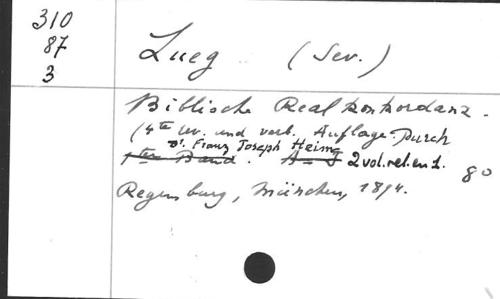 310
87
3
Lueg (Sev.)
Biblische Realkonkordanz.
(4te uv. und verb. Auflage. Durch
Dr. Franz Joseph Heim
1ter Band. A-J 2 vol. rel. en 1. 8º
Regensburg, München, 1894.